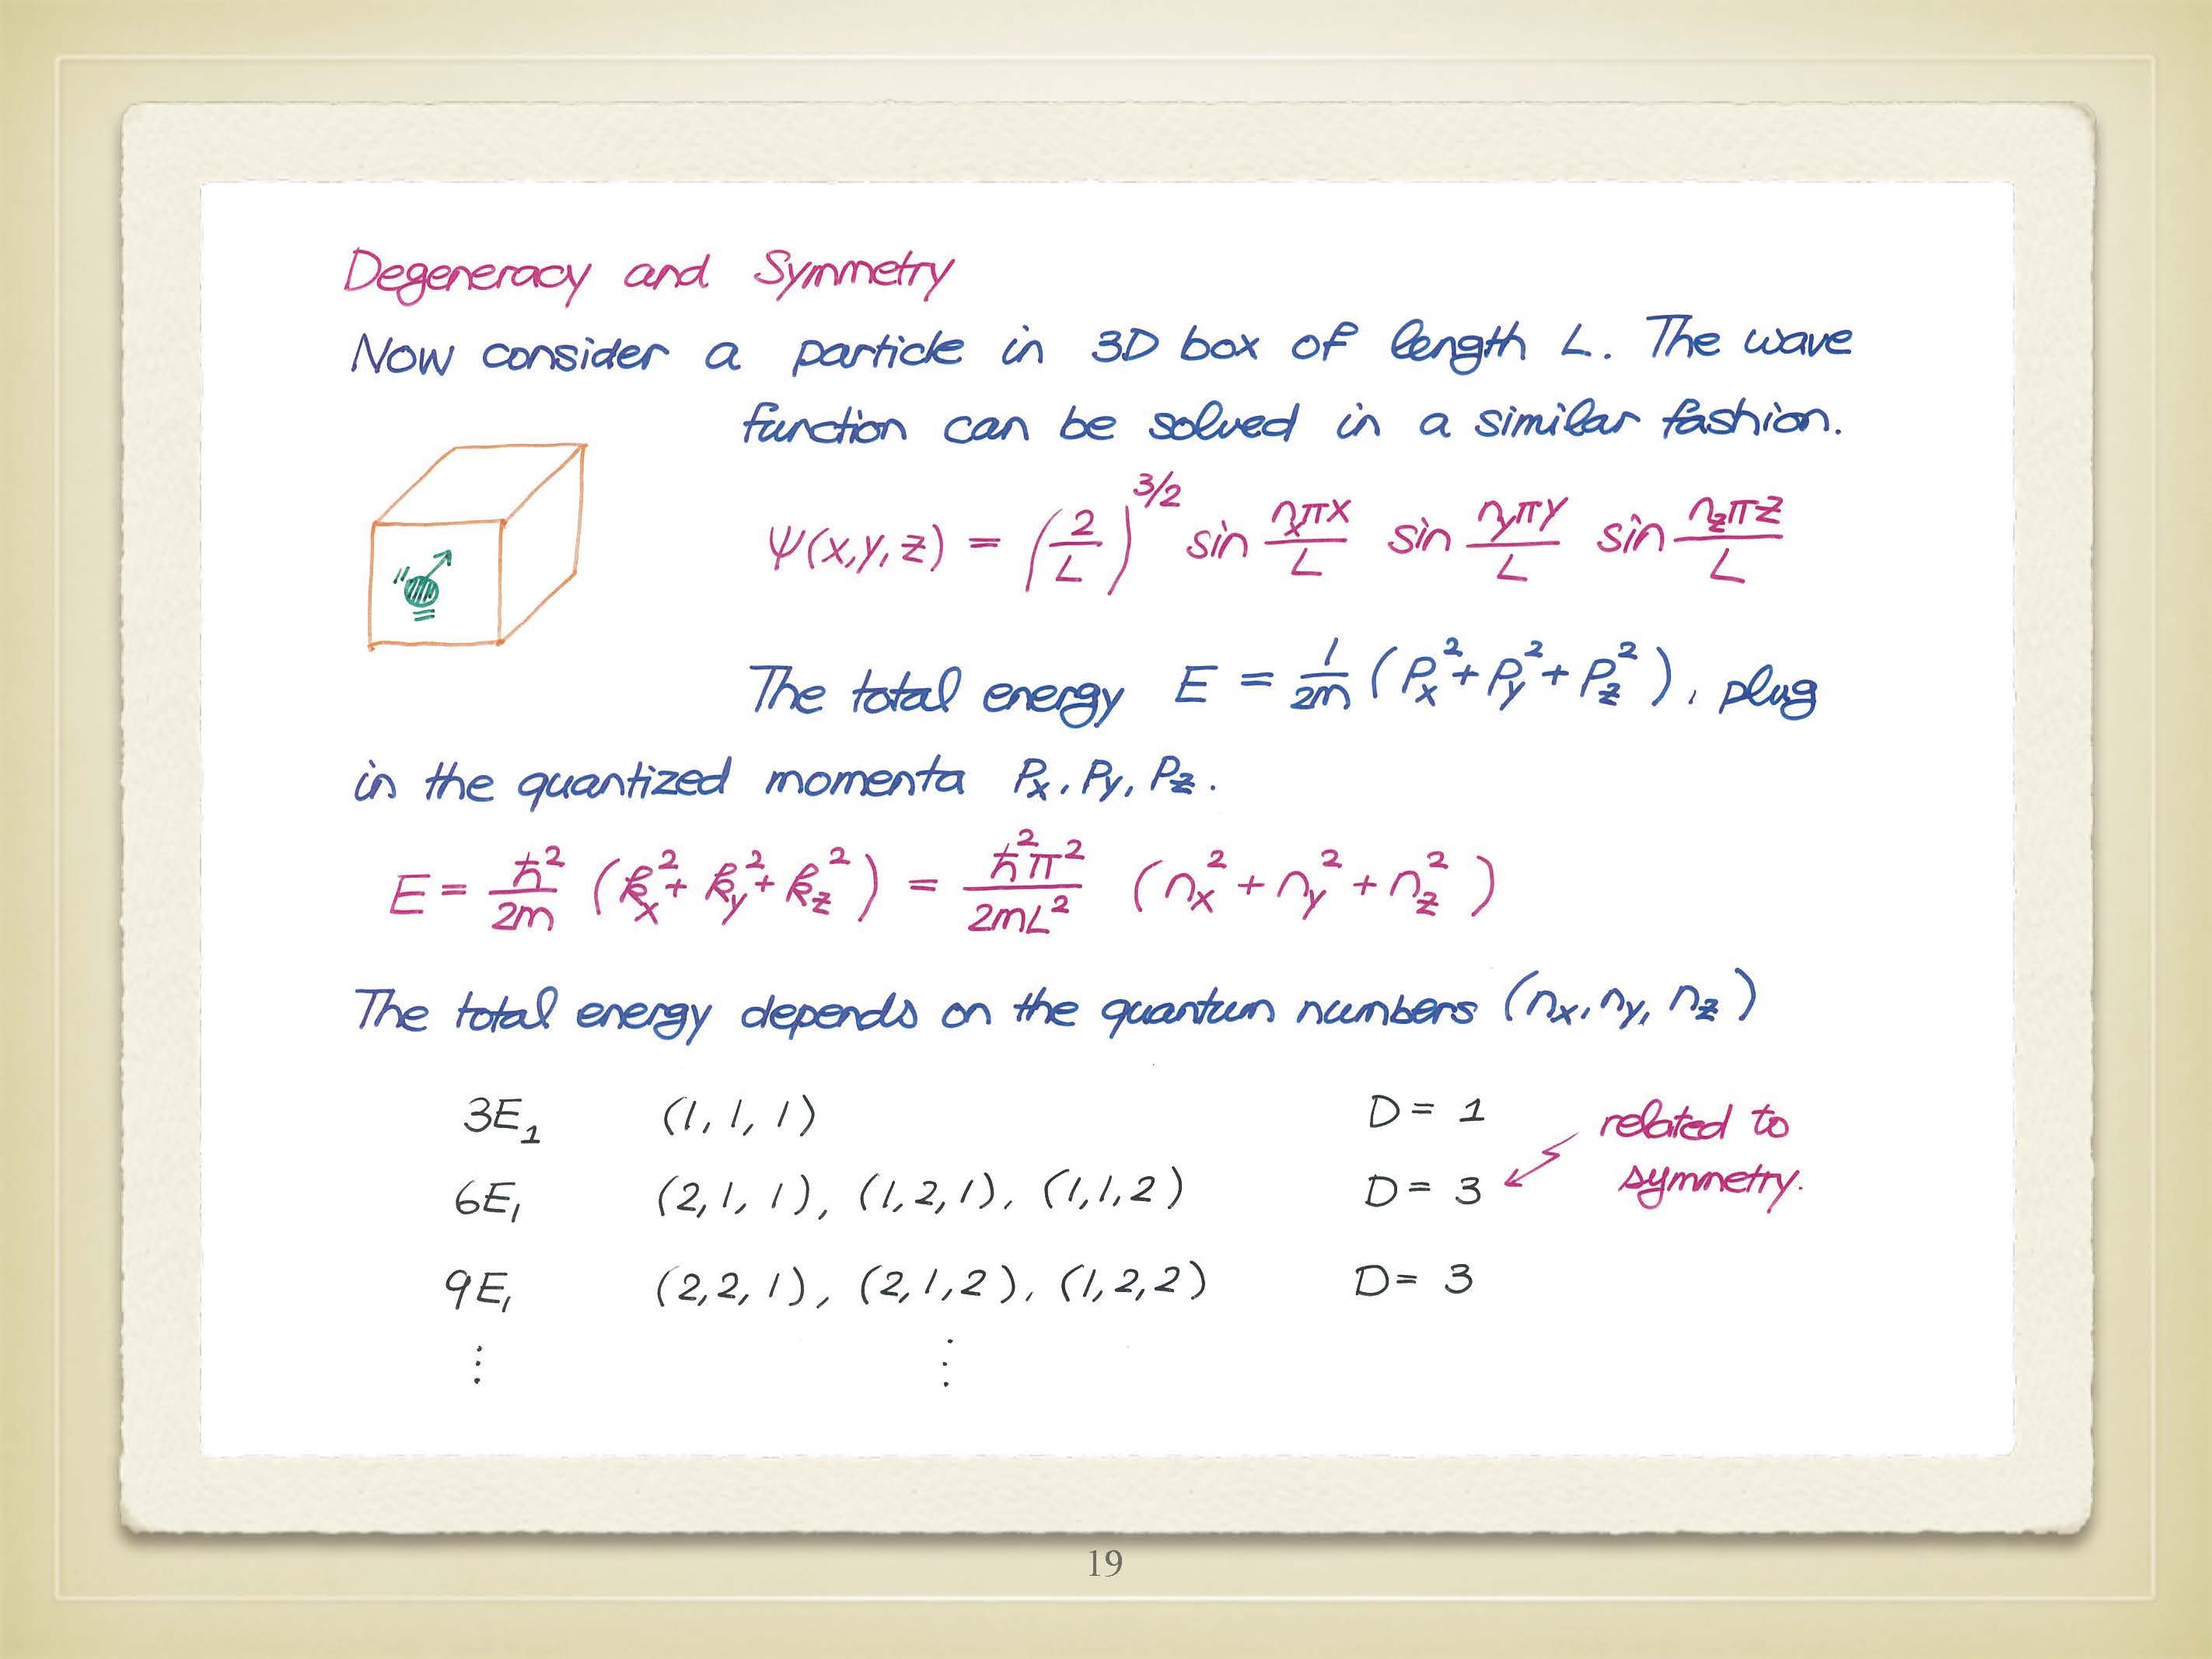 Degeneracy and Symmetry
Now consider a particle in 3D box of length L. The wave
function can be solved in a similar fashion.
ψ(x,y,z) = (2/L)^3/2 sin nₓπx/L sin n_yπy/L sin n_zπz/L
The total energy E = 1/2m (Pₓ² + P_y² + P_z²), plug
in the quantized momenta Pₓ, P_y, P_z.
E = ħ²/2m (kₓ² + k_y² + k_z²) = ħ²π²/2mL² (nₓ² + n_y² + n_z²)
The total energy depends on the quantum numbers (nₓ, n_y, n_z)
3E₁ (1, 1, 1) D = 1 related to
6E₁ (2, 1, 1), (1, 2, 1), (1, 1, 2) D = 3 symmetry.
9E₁ (2, 2, 1), (2, 1, 2), (1, 2, 2) D = 3
⋮ ⋮
19